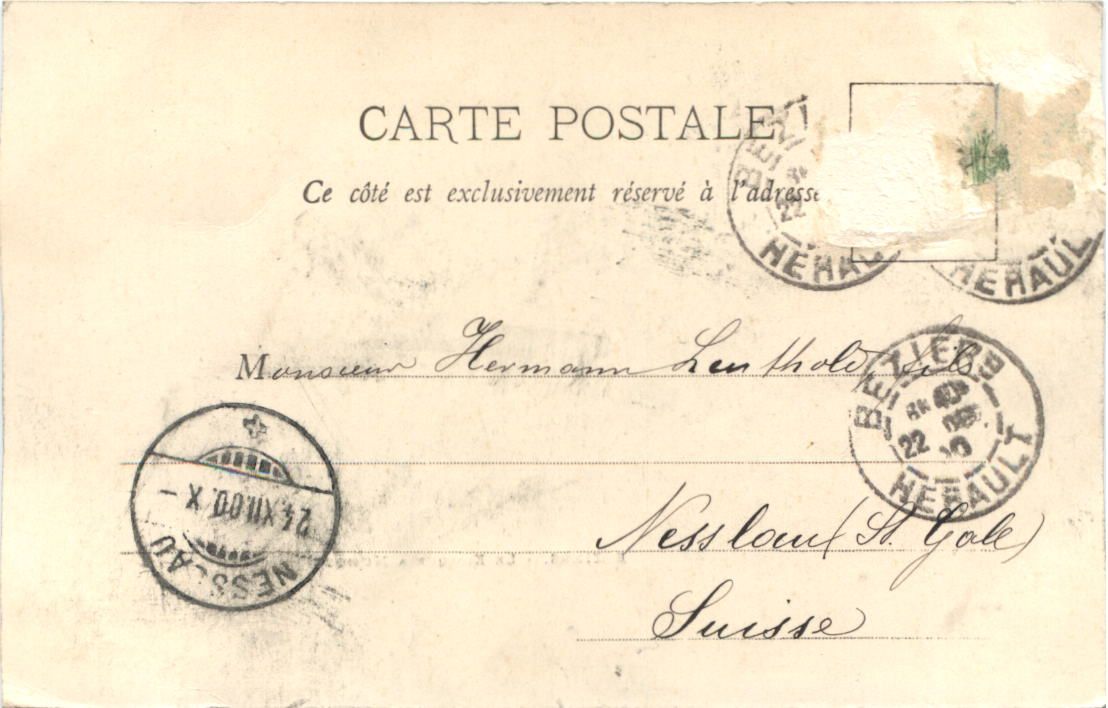 CARTE POSTALE
Ce côté est exclusivement réservé à l'adresse
BEZI
22
HERAUL
HERAUL
Monsieur Hermann Leuthold, fils
BEZIERS
8K 40
22 DEC.
HERAULT
24.XII.00.X-
NESSLAU
Nesslau (St. Gale)
Suisse